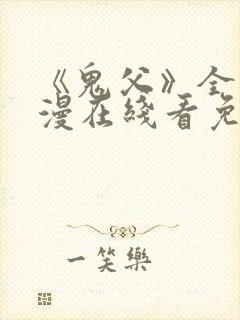 《鬼父》全
漫在线看免
一笑樂